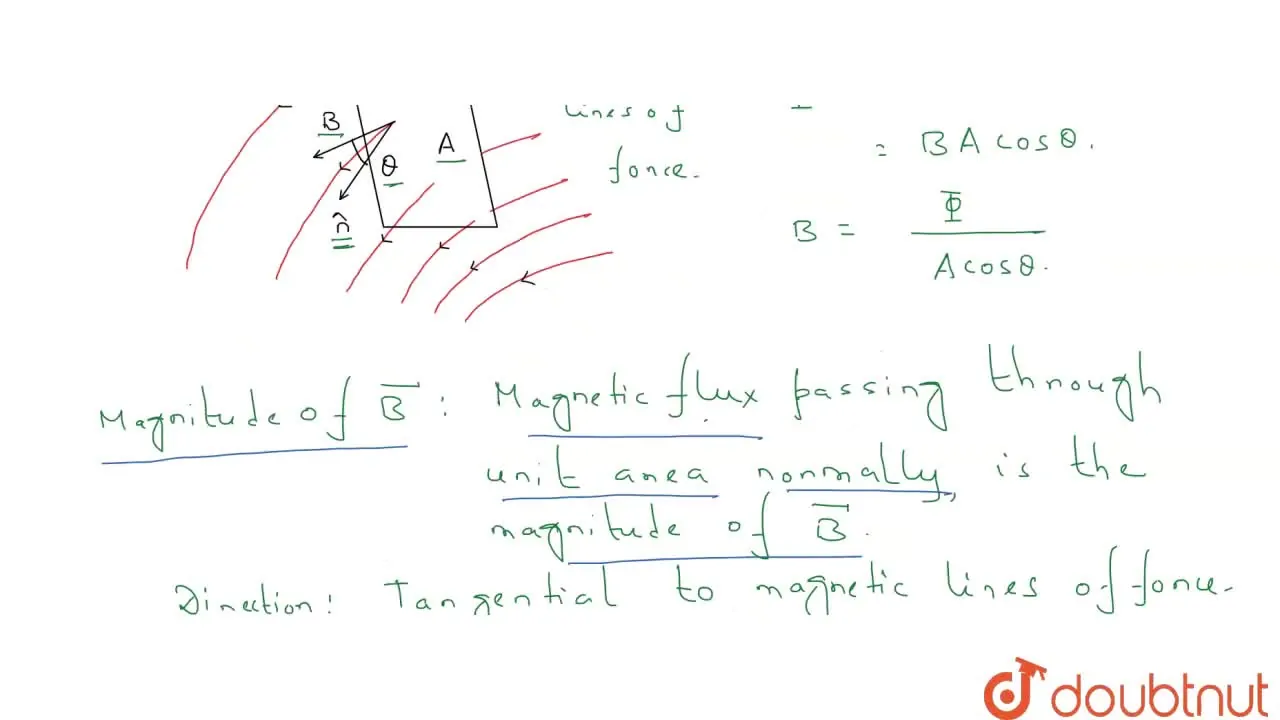 B
A
θ
n̂
lines of
force.
= B A cosθ.
B = Φ / A cosθ.
Magnitude of B̅ : Magnetic flux passing through
unit area normally, is the
magnitude of B̅.
Direction: Tangential to magnetic lines of force.
doubtnut